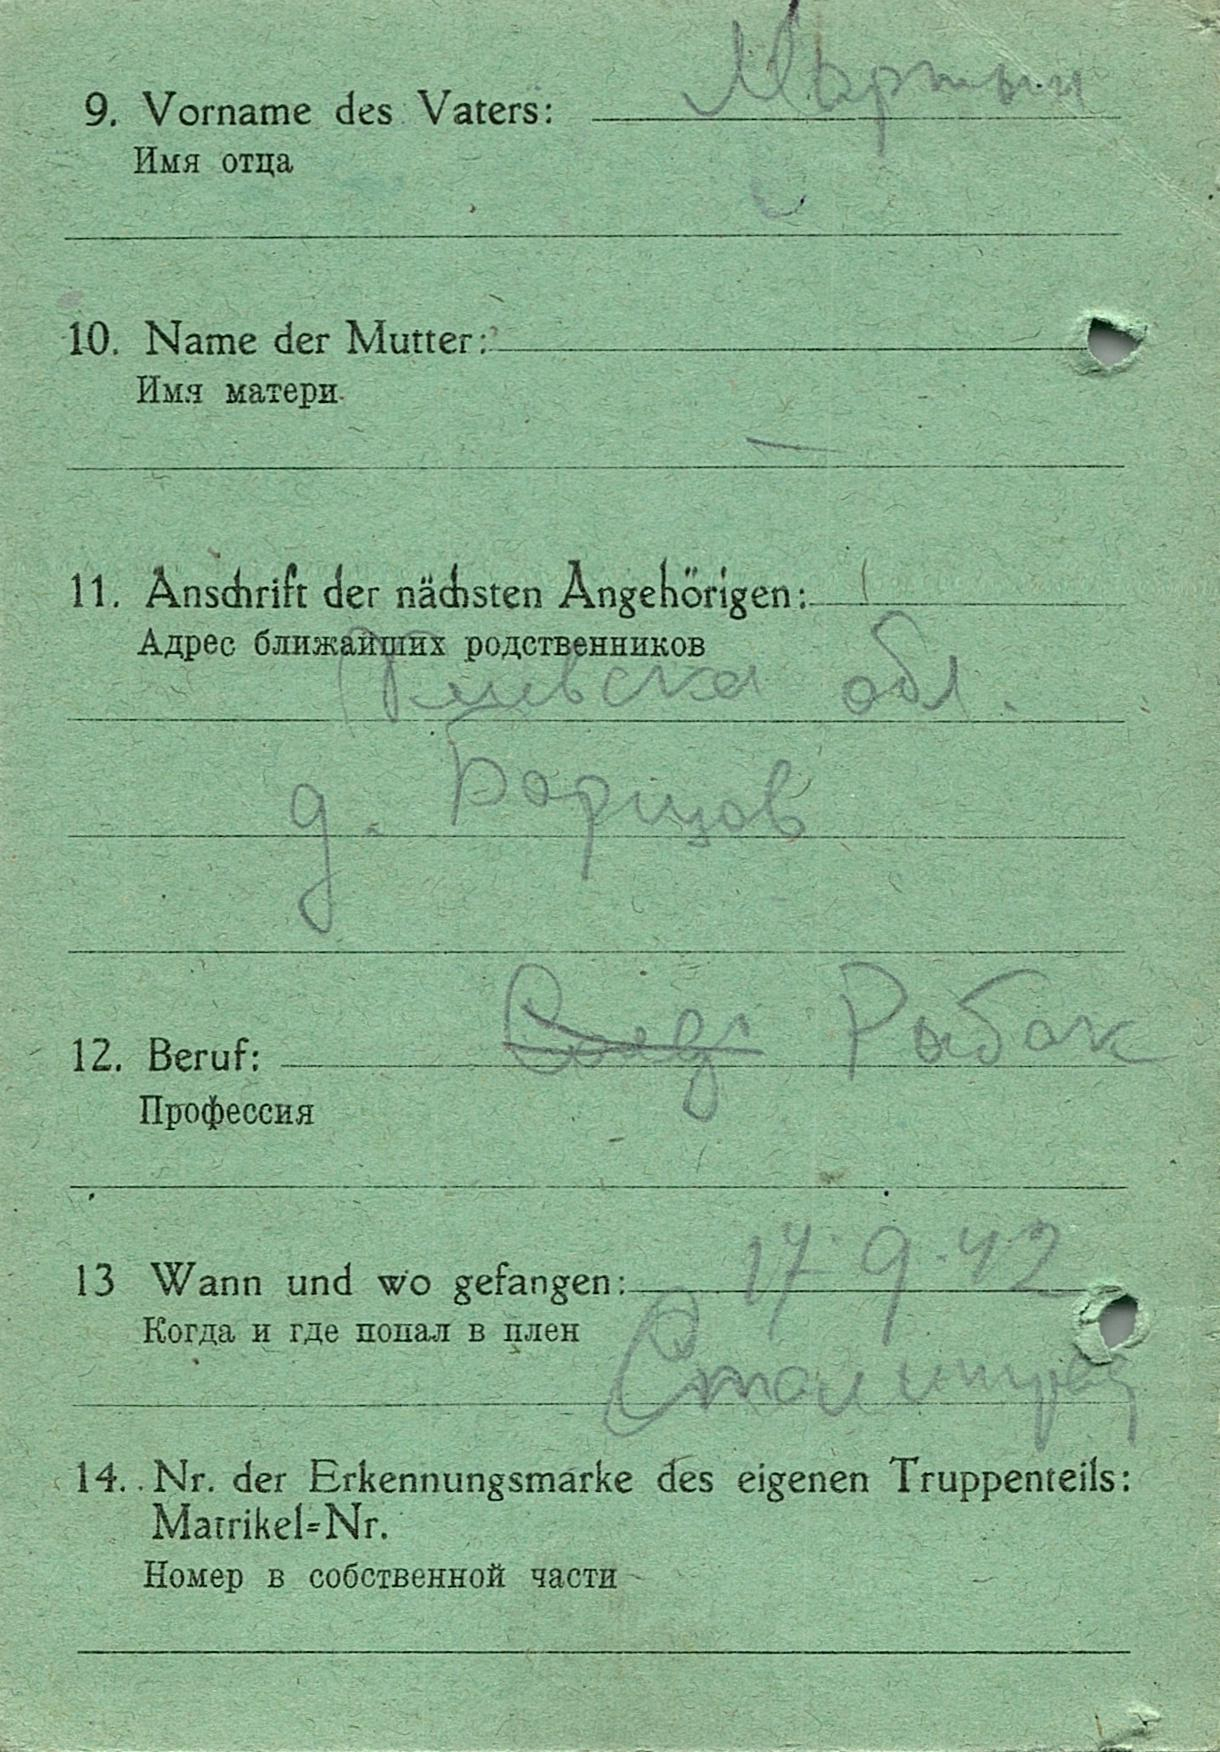 9. Vorname des Vaters: Мартын
Имя отца
10. Name der Mutter:
Имя матери
—
11. Anschrift der nächsten Angehörigen:
Адрес ближайших родственников
обл.
д. Борщов
12. Beruf: Рыбак
Профессия
13 Wann und wo gefangen: 17.9.42
Когда и где попал в плен
Сталинград
14. Nr. der Erkennungsmarke des eigenen Truppenteils:
Matrikel=Nr.
Номер в собственной части